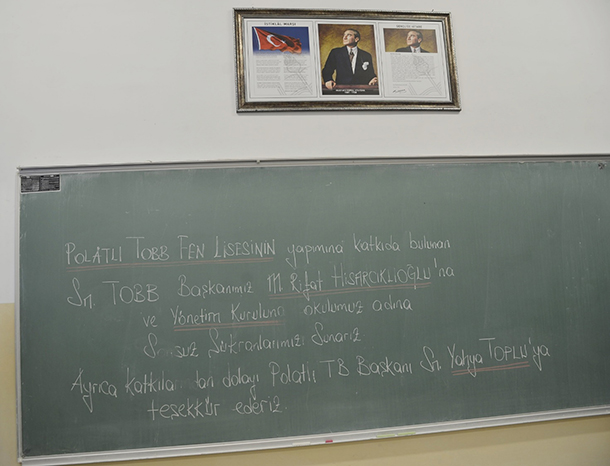 İSTİKLAL MARŞI
POLATLI TOBB FEN LİSESİNİN yapımına katkıda bulunan
Sn. TOBB Başkanımız M. Rifat HİSARCIKLIOĞLU'na
ve Yönetim Kuruluna okulumuz adına
Sonsuz Şükranlarımızı Sunarız
Ayrıca Katkılarından dolayı Polatlı TB Başkanı Sn. Yahya TOPLU'ya
teşekkür ederiz.